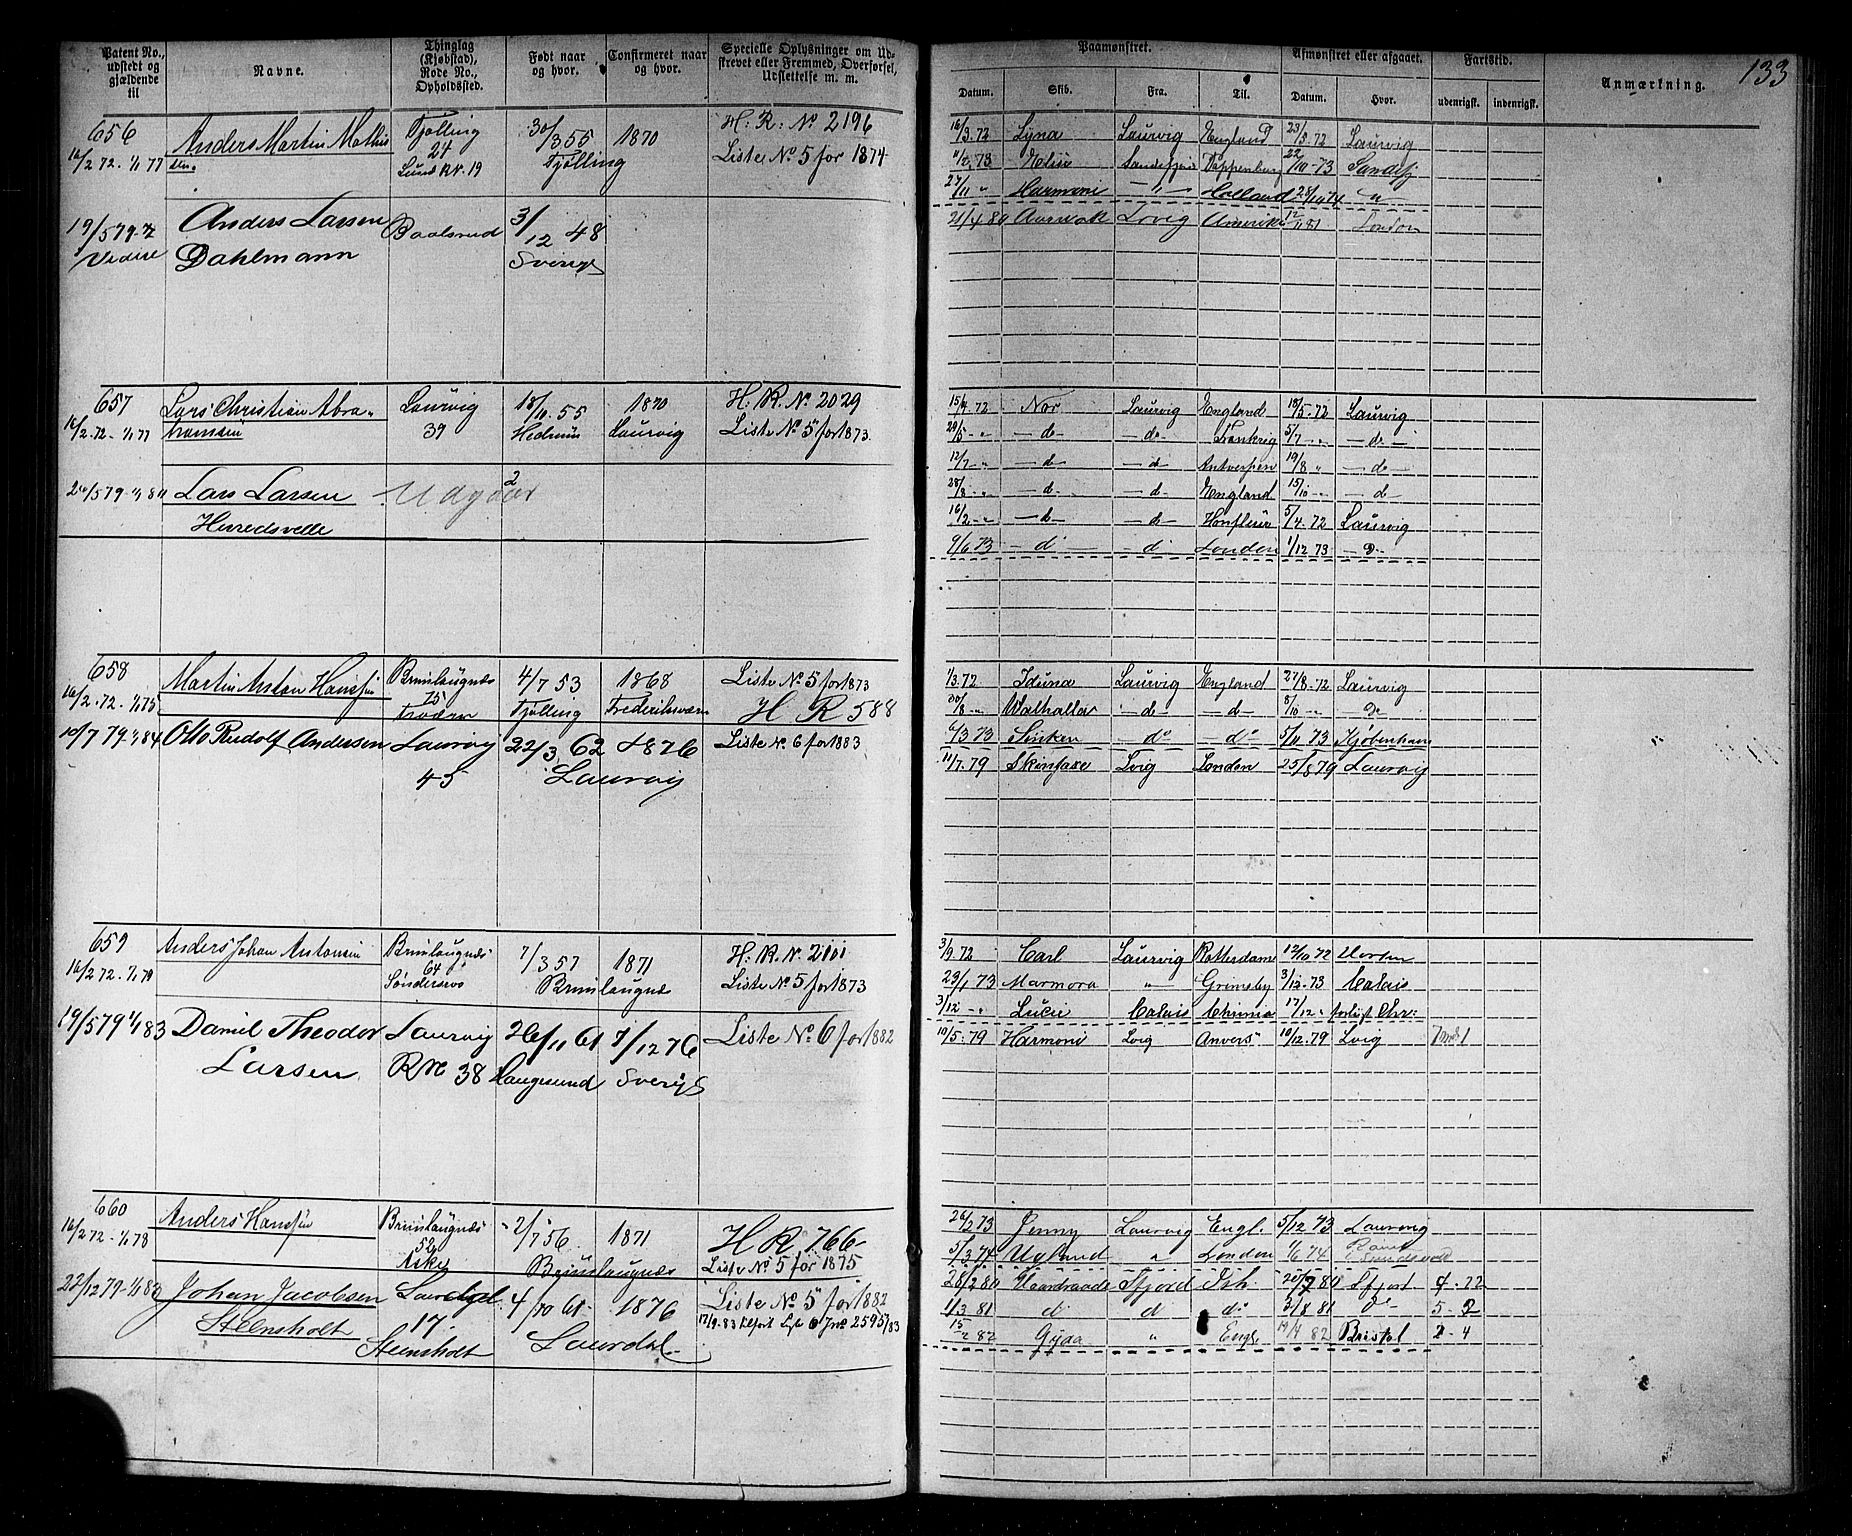 133
Patent No., udstedt og gjældende til
Navne.
Thinglag (Kjøbstad), Rode No., Opholdssted.
Født naar og hvor.
Confirmeret naar og hvor.
Specielle Oplysninger om Udskrevet eller Fremmed, Overførsel, Udslettelse m. m.
Paamønstret.
Afmønstret eller afgaaet.
Fartstid.
Anmærkning.
Datum. Skib. Fra. Til. Datum. Hvor. udenrigsk. indenrigsk.
656 Anders Martin Mathis Tjølling 30/3 55 1870 H: R: No 2196
16/2 72. 1/1 77 sen. 24 Tjølling Liste No 5 for 1874
Lund RN. 19
19/5 79 Anders Larsen Baalsrud 3/12 48
Dahlmann Sverige
16/3.72 Lyna Laurvig England 23/8.72 Laurvig
73 Elise Sandefjord Pappenburg 22/10 73 Sandefj
27/11 " Harmoni — " — Holland 28/10 74 "
21/4 80 Lvig Amerika 12/11 81 London
657 Lars Christian Abra- Laurvig 18/10 55 1870 H: R. No 2029
16/2 72. 1/1 77 hamsen 39 Hedrum Laurvig Liste No 5 for 1873
20/5 79 Lars Larsen Udgaar
Herredsvelle
72 Nor Laurvig England 18/5.72 Laurvig
29/5 " — d — — d — Frankrig 5/7 — " — d —
12/7 — " — d — — d — Antwerpen 19/8 " — d —
28/8 — " — d — — d — England 15/10 — " — d
16/2 — " — d — — d — Honfleur 5/4.72 Laurvig
9/6 73 — d — — d London 1/12 73 — D —
658 Martin Anton Hanssen Brunlaugnæs 4/7 53 1868 Liste No 5 for 1873
16/2.72. 1/1 75 75 Tjølling Frederiksværn H R 588
10/7 79 1/1 84 Otto Rudolf Andersen Laurvig 22/3 62 1876 Liste No 6 for 1883
45 Laurvig
1/3.72 Iduna Laurvig England 27/8.72 Laurvig
Walhalla — d — — d — 8/10 — " D
6/3 73 Sirken — do — do 5/11 73 Kjøbenhavn
11/7.79 Skinfaxe Lvig London 25/8 79 Laurvig
659 Anders Johan Antonsen Brunlaugnæs 7/3 57 1871 H: R. No 2101
16/2 72. 1/1 79 64 Brunlaugnæs Liste No 5 for 1873
Søndersrø
19/5 79 1/1 83 Daniel Theodor Laurvig 26/11 61 7/12 76 Liste No 6 for 1882
Larsen RN 38 Haugesund Sverige
3/9.72 Carl Laurvig Rotterdam 12/10 72
23/1 73 Marmora " Grimsby 3/12.73 Calais
3/12 — " Lucie Calais China 17/12 " forligt Chr:
10/5.79 Harmoni Lvig Anvers 10/12.79 Lvig
660 Anders Hanssen Brunlaugnæs 2/7 56 1871 H R. 766
16/2 72. 1/1 78 52 Brunlaugnæs Liste No 5 for 1875
Aske
22/12 79. 1/1 83 Johan Jacobsen Laurdal 4/10 61 1876 Liste No 5 for 1882
Steensholt 17. Laurdal
Steensholt
26/2 73 Jenny Laurvig Engl. 5/12 73 Laurvig
5/3 74 Ugland " London 1/6 74
28/2 80 Haardraade Sfjord Dsh. 20/7 80 Sfjord 4 - 22
1/3 81 d d do 3/8 81 do 5 - 2
15/2 82 Gyda " Engl 19/4 82 Bristol 2 - 4